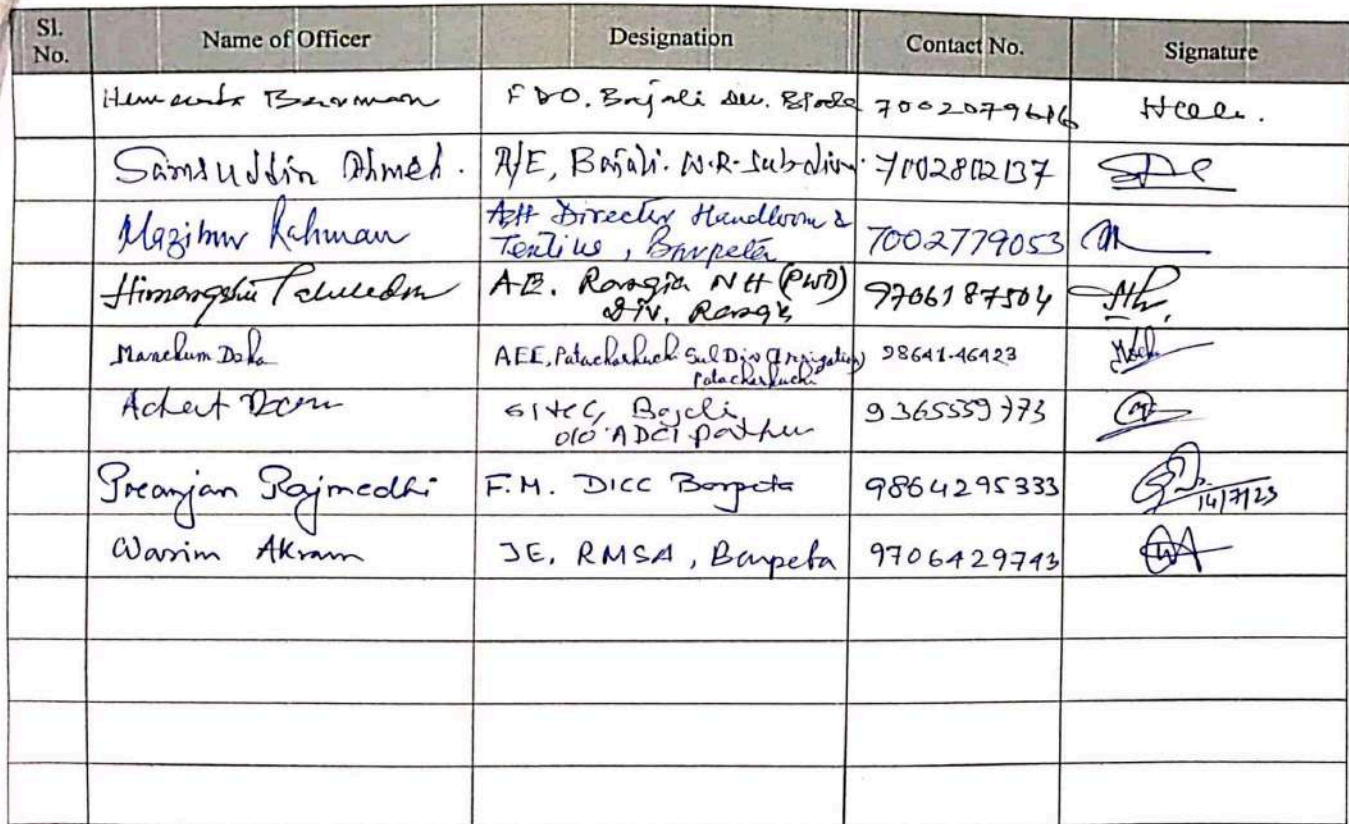 Sl. No. Name of Officer Designation Contact No. Signature
Barman FDO. Bajali Dev. Block 7002079616
Samsuddin Ahmed. A/E, Bajali. W.R. Sub-divn. 7002802137
Mazibur Rahman Asst Director Handloom &
Textiles, Barpeta 7002779053
Himangshu Talukdar A.E. Rangia NH (PWD)
Div. Rangia 9706187504
Manckum Deka AEE, Patacharkuchi Sub Divn (Irrigation)
Patacharkuchi 98641-46423
Bajali
O/O ADCI Pathsala 9365559773
Rajmedhi F.M. DICC Barpeta 9864295333
14/7/23
Wasim Akram JE, RMSA, Barpeta 9706429743